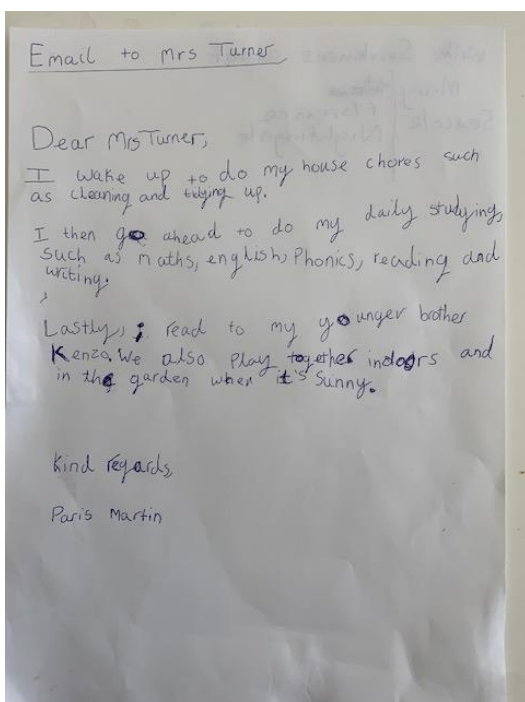 Email to Mrs Turner
Dear Mrs Turner,
I wake up to do my house chores such
as cleaning and tidying up.
I then go ahead to do my daily studying,
such as maths, english, Phonics, reading and
writing.
Lastly, i read to my younger brother
Kenzo. We also play together indoors and
in the garden when it's Sunny.
Kind regards,
Paris Martin